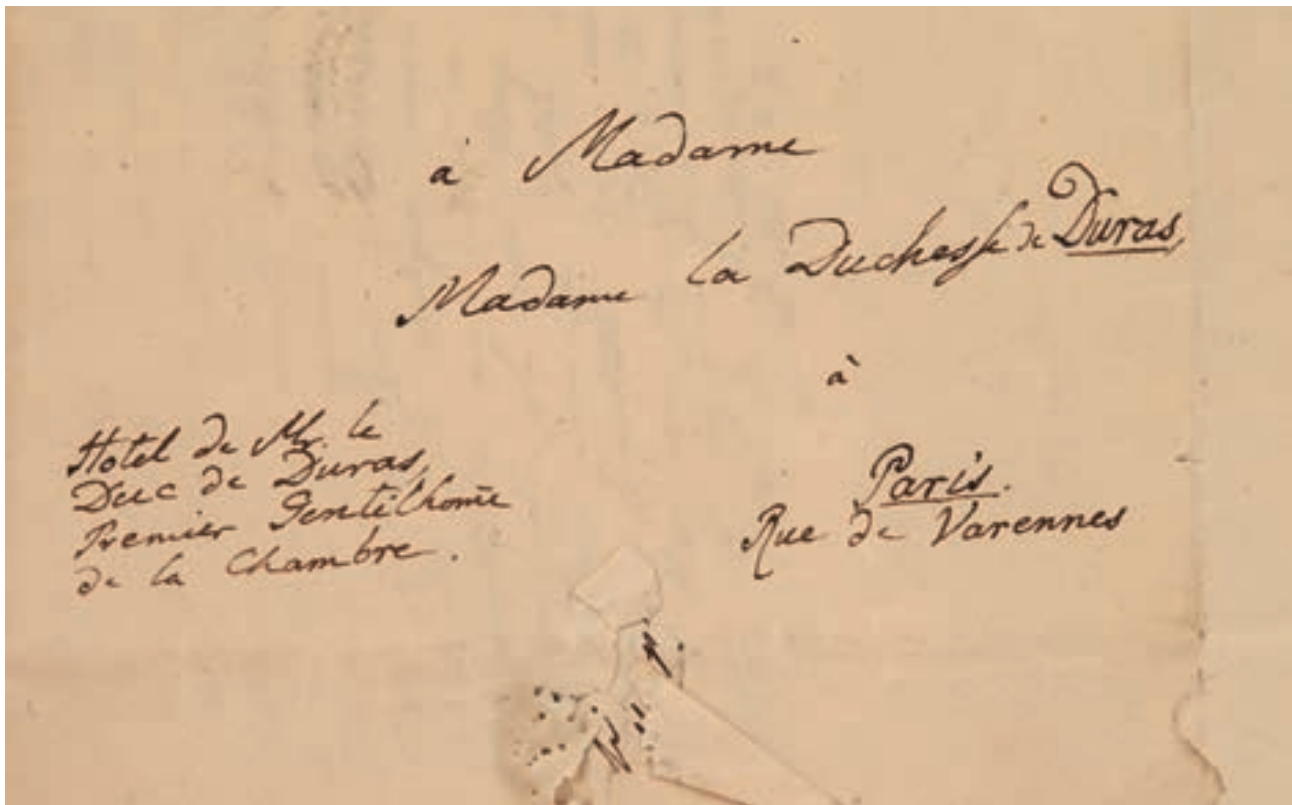 à Madame
Madame la Duchesse de Duras,
à
Paris.
Rue de Varennes
Hotel de Mr. le
Duc de Duras,
Premier Gentilhom̄e
de la Chambre.